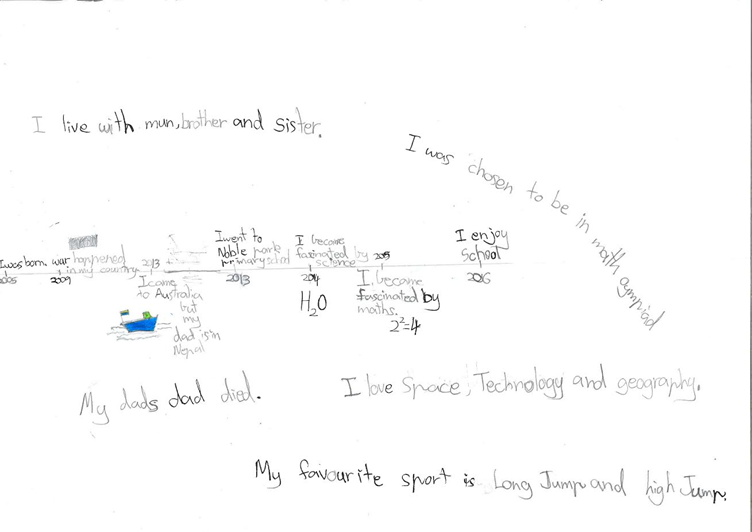 I live with mun, brother and sister.
I was chosen to be in math aympiad
I was born.
2005
war happened
in my country
2009
2013
I came
to Australia
but
my
dad is in
Nepal
I went to
Noble park
primary school
2013
I become
fasinated by
science
2014
H₂O
2015
I become
fascinated by
maths.
2²=4
I enjoy
School
2016
My dads dad died.
I love space, Technology and geography.
My favourite sport is Long Jump and high Jump.